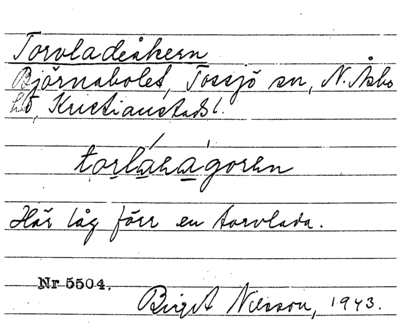 Torvladeåkern
Björnabolet, Tossjö sn, N. Åsbo
hd, Kristianstads l.
Här låg förr en torvlada.
Nr 5504.
Birgit Nilsson, 1943.